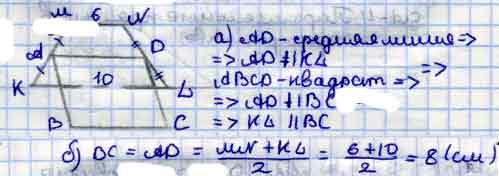 M 6 N
A D
K 10 L
B C
а) AD - средняя линия =>
=> AD ∦ KL
ABCD - квадрат => =>
=> AD ∦ BC
=> KL || BC
б) BC = AD = MN + KL / 2 = 6 + 10 / 2 = 8 (см)